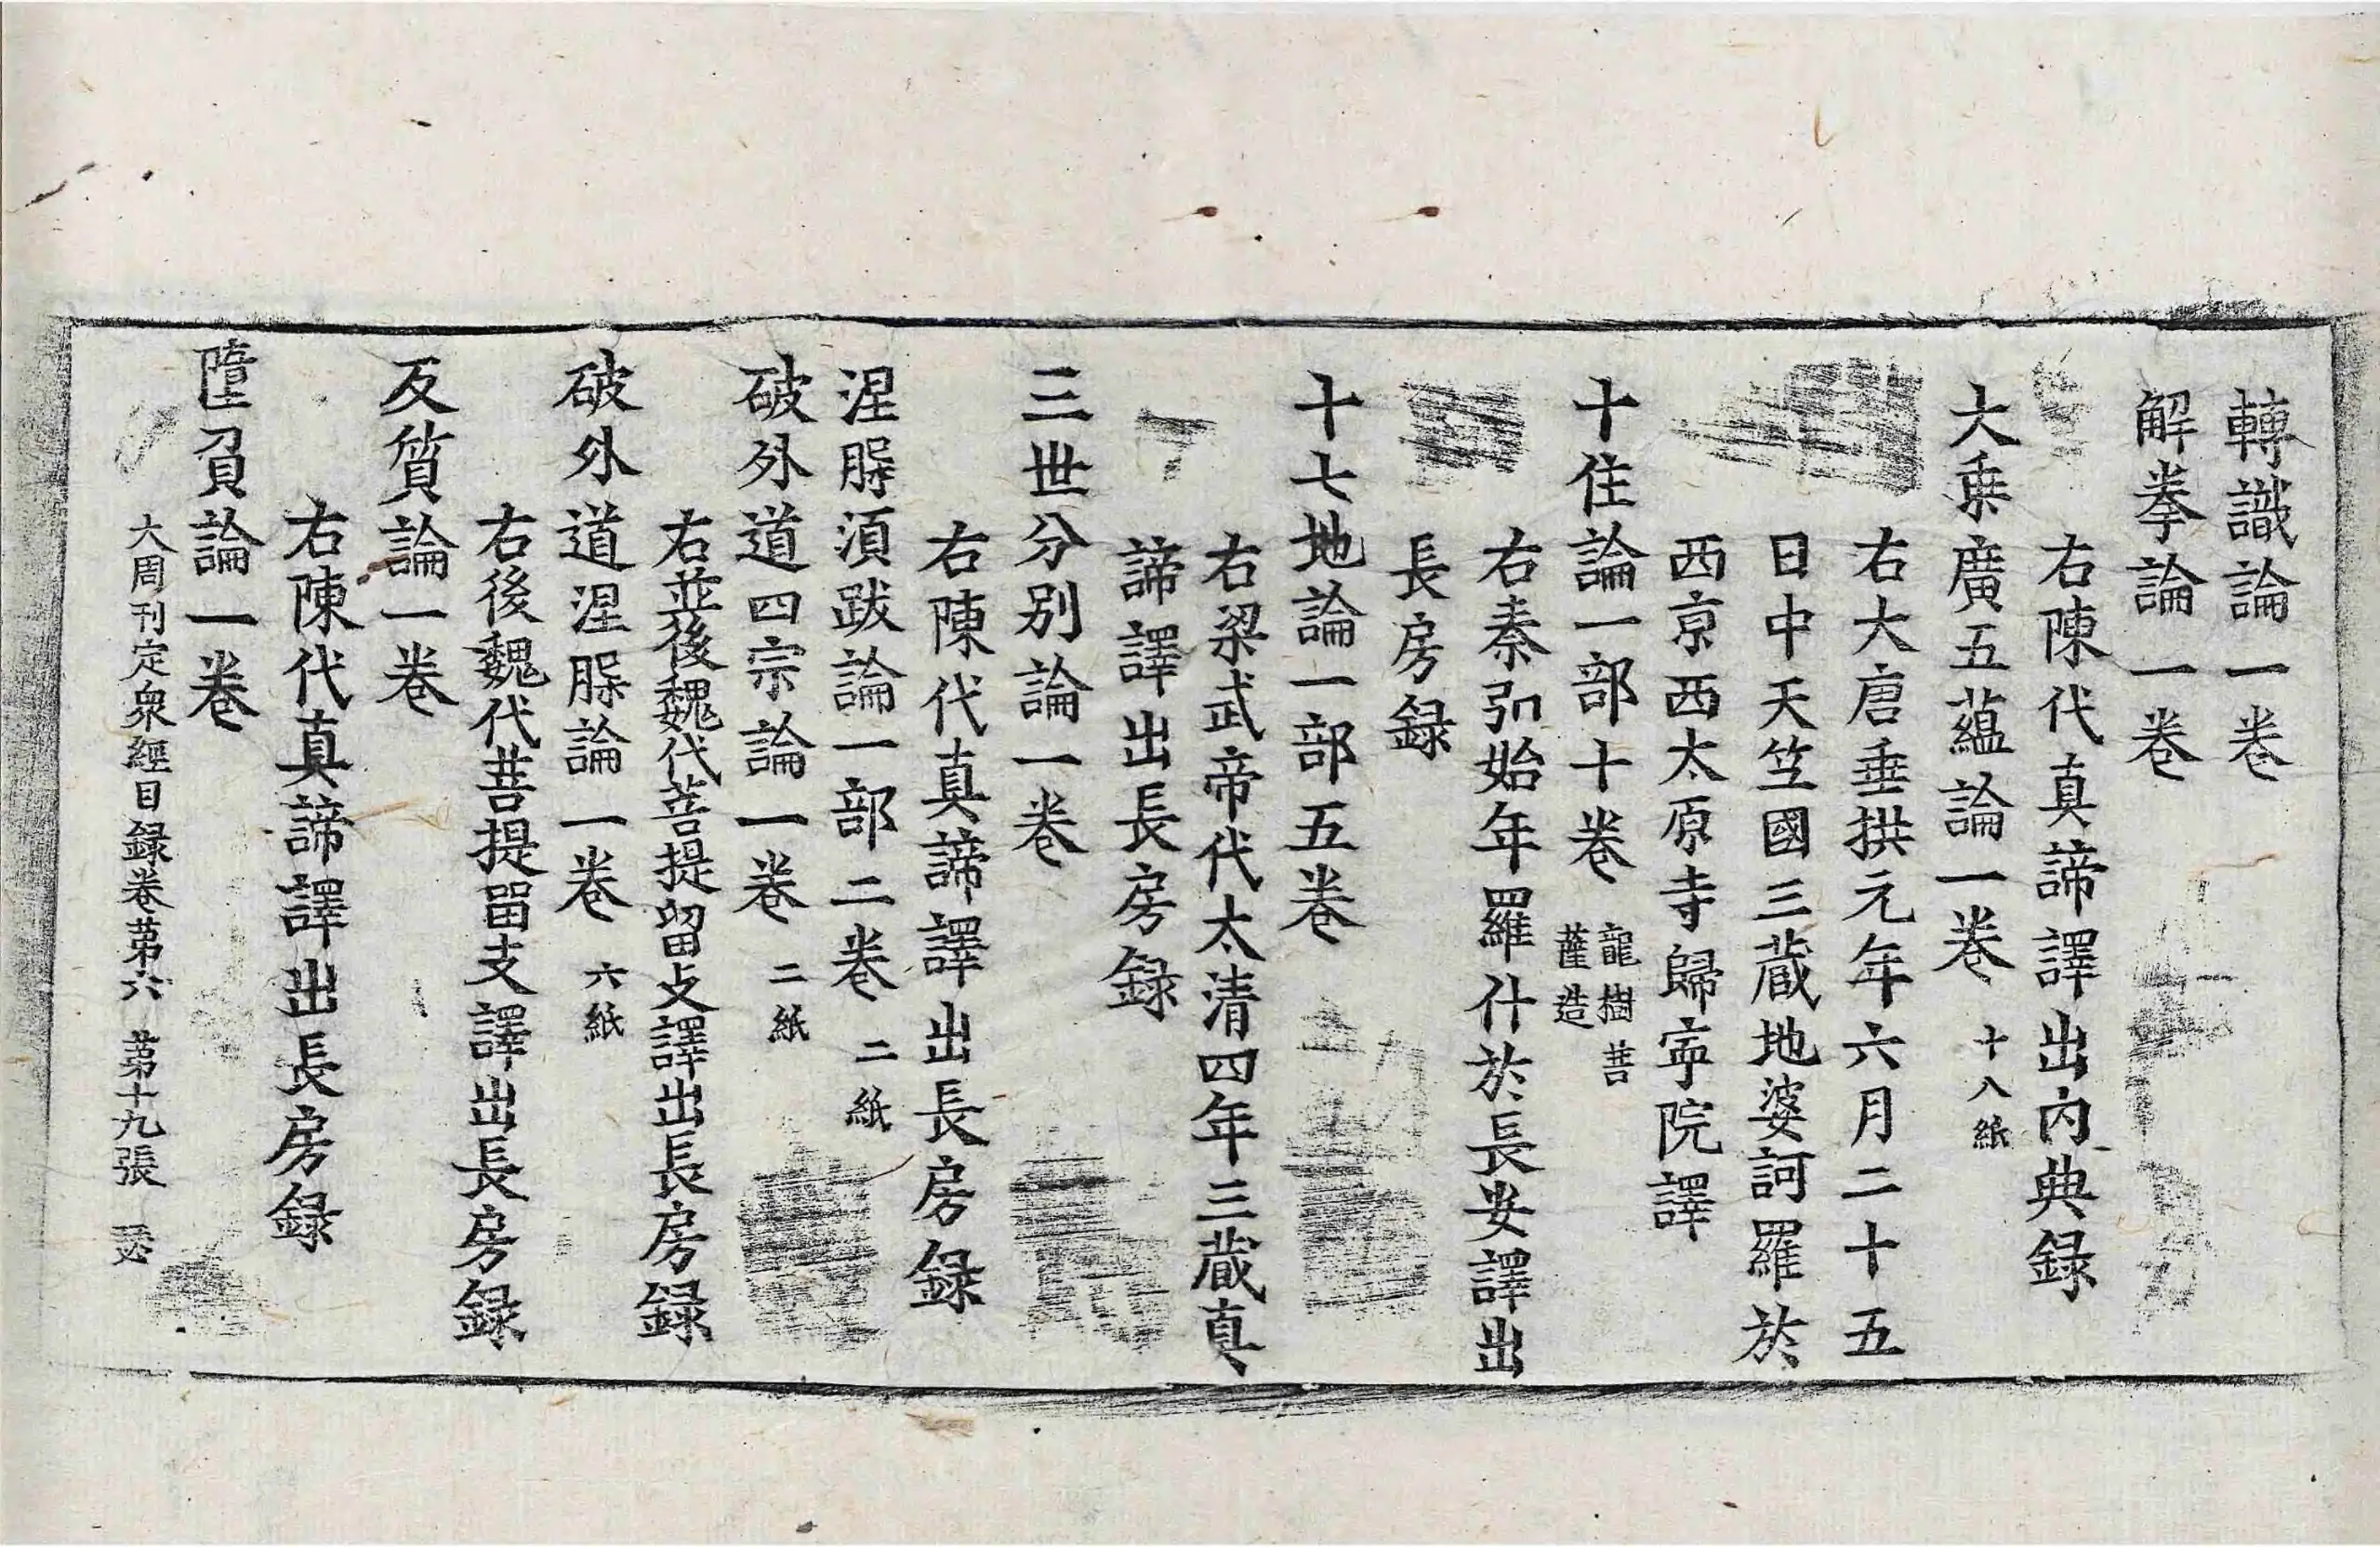 轉識論一卷
解拳論一卷
右陳代真諦譯出內典録
大乗廣五藴論一卷 十八紙
右大唐垂拱元年六月二十五
日中天竺國三蔵地婆訶羅於
西京西太原寺歸寧院譯
十住論一部十卷 龍樹菩薩造
右秦弘始年羅什於長安譯出
長房録
十七地論一部五卷
右梁武帝代太清四年三蔵真
諦譯出長房録
三世分別論一卷
右陳代真諦譯出長房録
涅脲須跋論一部二卷 二紙
破外道四宗論一卷 二紙
右並後魏代菩提留支譯出長房録
破外道涅脲論一卷 六紙
右後魏代菩提畱支譯出長房録
反質論一卷
右陳代真諦譯出長房録
墮負論一卷
大周刊定衆經目録卷苐六 苐十九張